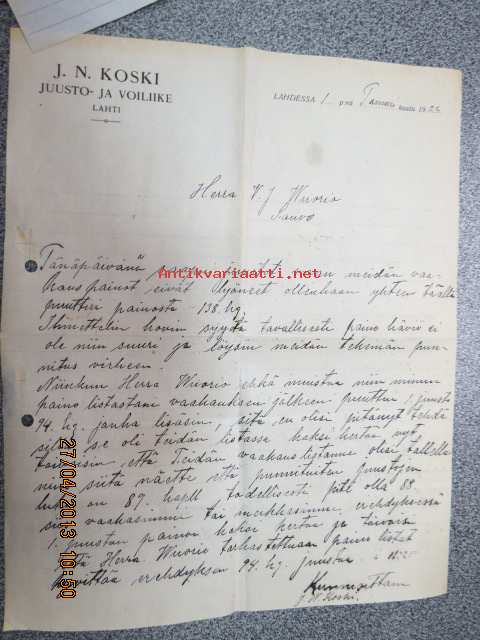 J. N. KOSKI
JUUSTO- JA VOILIIKE
LAHTI
LAHDESSA 1 p:nä Tammi kuuta 192
Herra V. J. Wuorio
Sauvo
Tänäpäivänä meidän vaa-
Antikvariaatti.net
kauspainot eivät lyöneet ollenkaan yhteen täällä
puuttui painosta - 138 kg.
Ihmettelin kovin syytä tavallisesti paino häviö ei
ole niin suuri ja löysin meidän tekemän pun-
nitus virheen.
Niinkun Herra Wuorio ehkä muistaa niin minun
paino listastani vaakauksen jälkeen puuttui 1 juusto
94. kg. jonka lisäsin, sitä en olisi pitänyt tehdä
sillä se oli Teidän listassa kaksi kertaa nyt
että Teidän vaakaus listanne olisi tallella
niin siitä näette että punnituiten juustojen
luku on 89. kapll todellisesti piti olla 88
me vaakasimme tai merkkasimme erehdyksessä
1. juuston painon kaksi kertaa ja toivon
että Herra Wuorio tarkastettuaan paino listat
hyvittää erehdyksen 94. kg. juustoa
Kunnioittaen
J. N. Koski.
27/04/2013 10:50